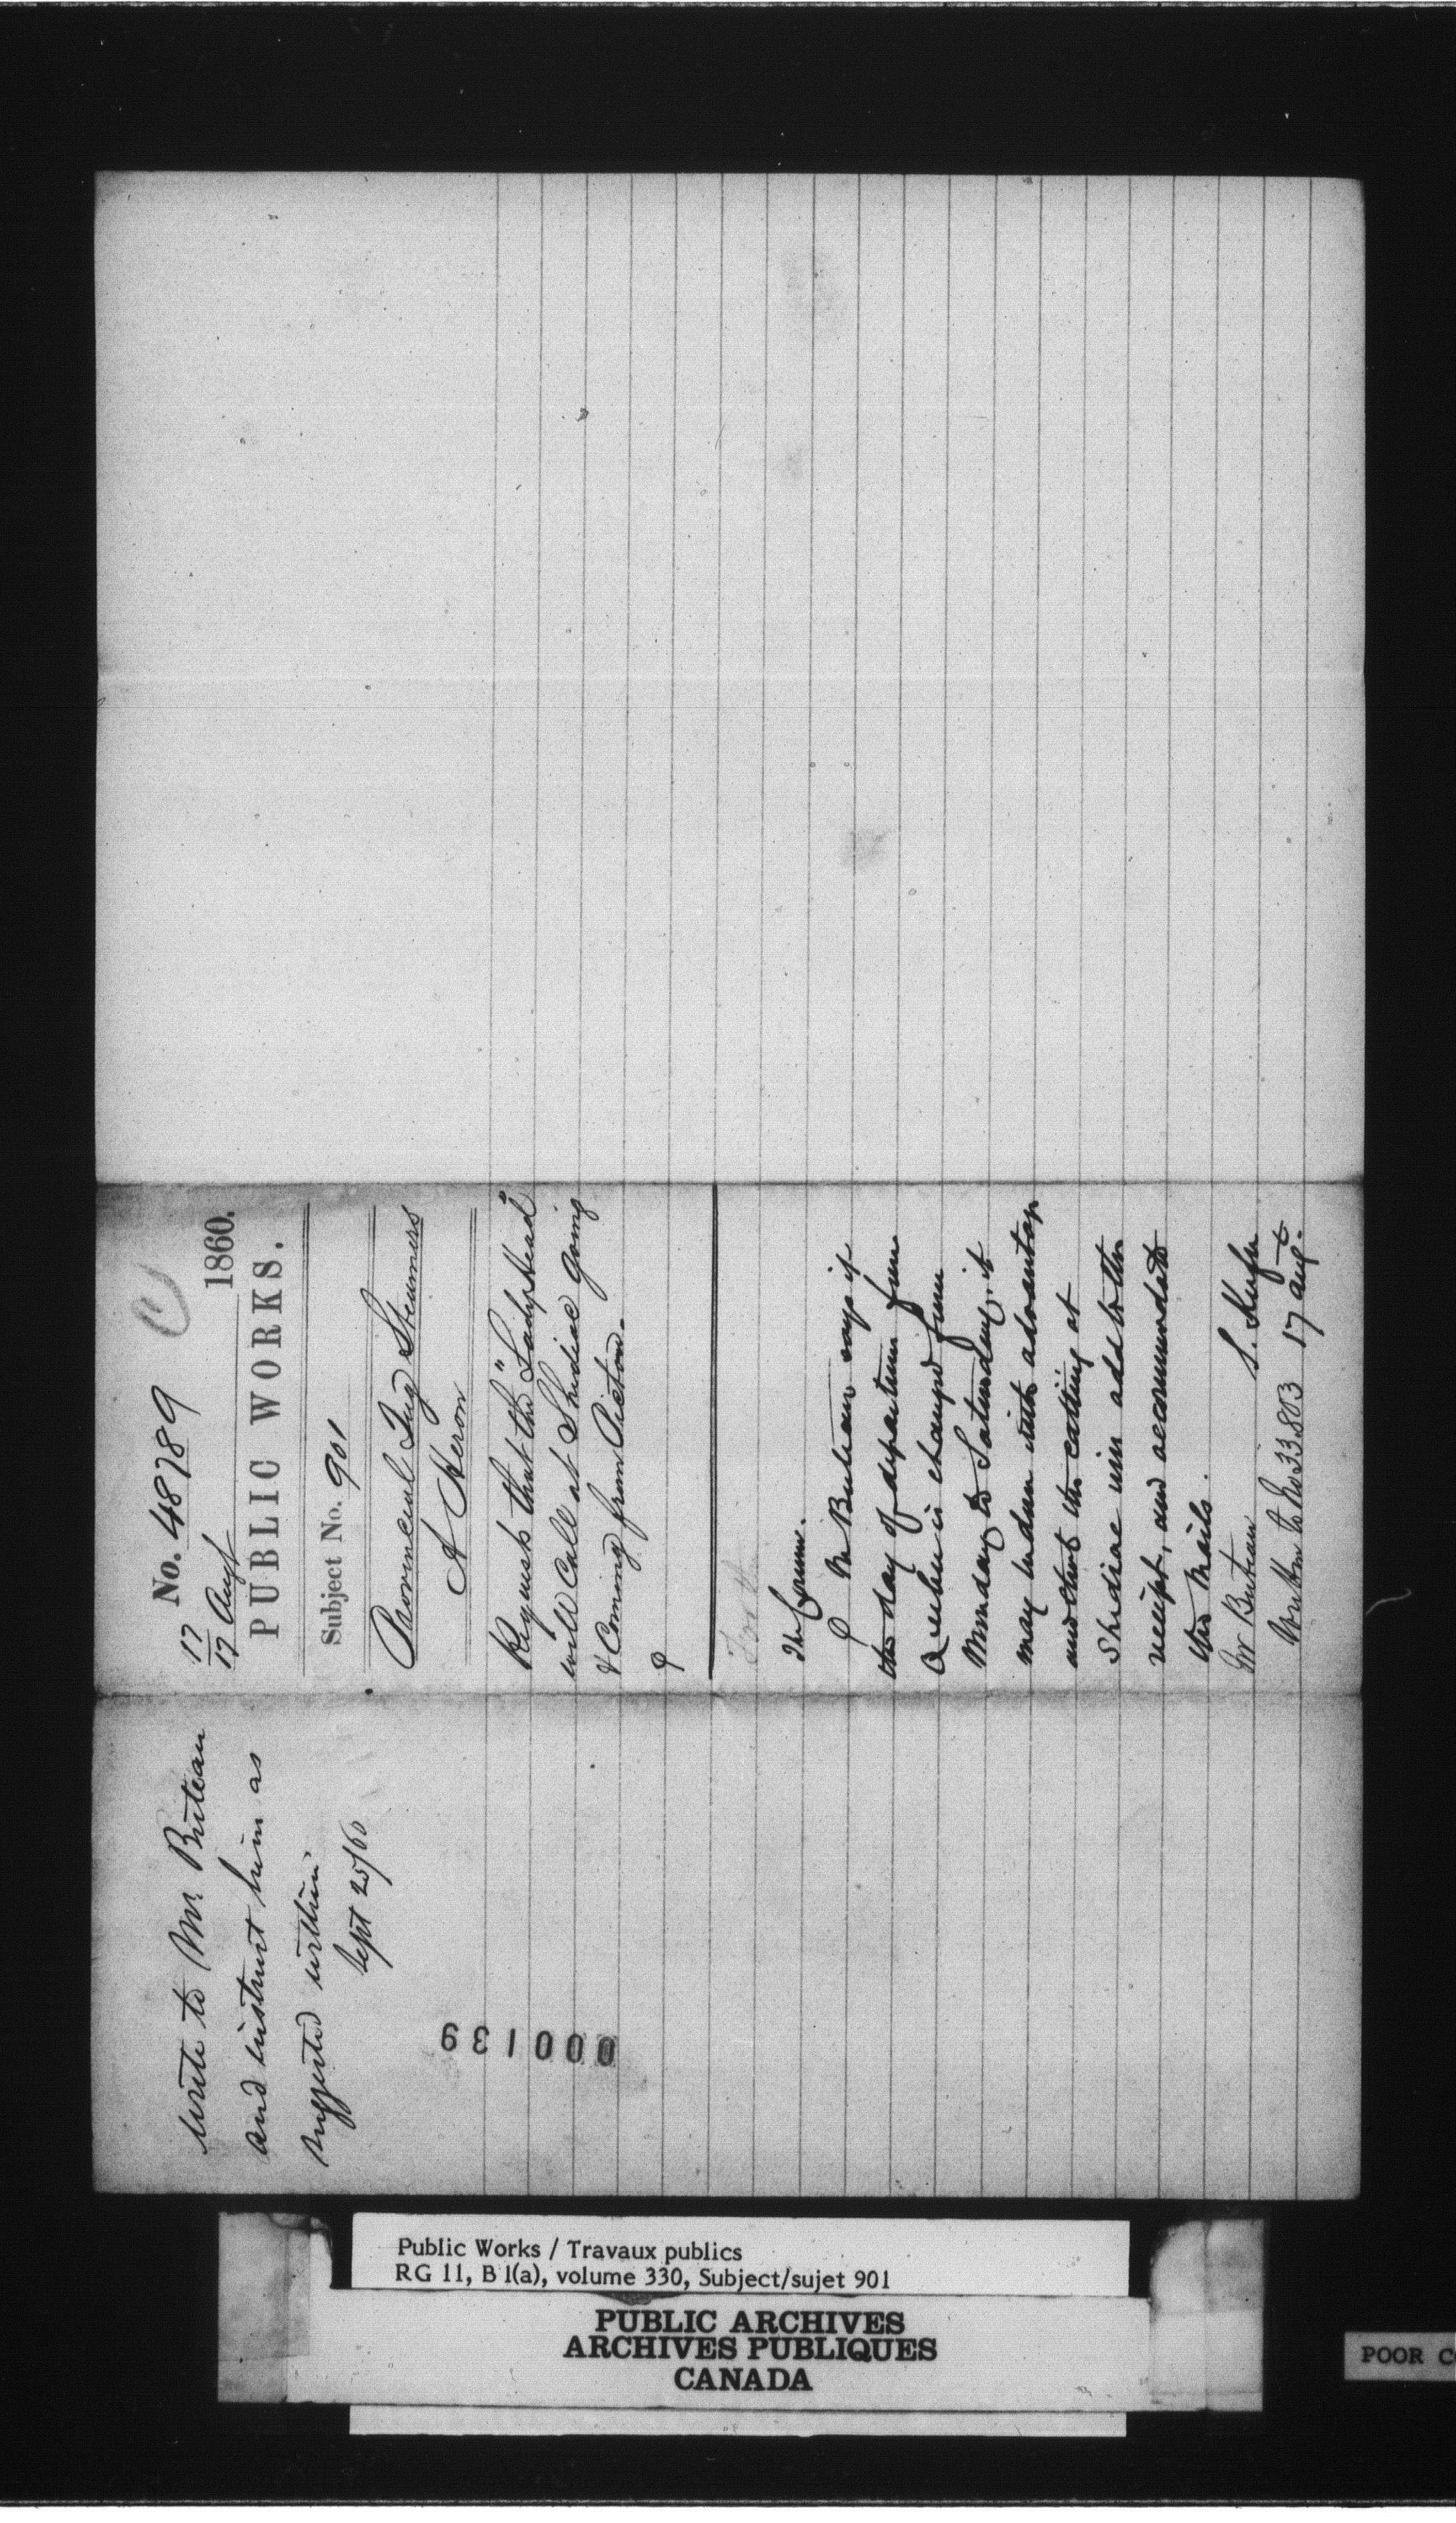 No. 48789
17
17 Augt 1860.
PUBLIC WORKS.
Subject No. 901
Provincial Tug Steamers
A Heron
Requests that the "Lady Head"
will Call at Shediac going
& Coming from Pictou.
Mr Buteau says if
the day of departure from
Quebec is changed from
Monday to Saturday, it
may be done with advantage
and that the calling at
Shediac will add to the
receipt, and accommodate
the Mails.
Mr Buteau
Written to No 33.803 17 Augt.
Write to Mr. Buteau
and instruct him as
suggested within
Sept 25/60
000139
Public Works / Travaux publics
RG 11, B 1(a), volume 330, Subject/sujet 901
PUBLIC ARCHIVES
ARCHIVES PUBLIQUES
CANADA
POOR